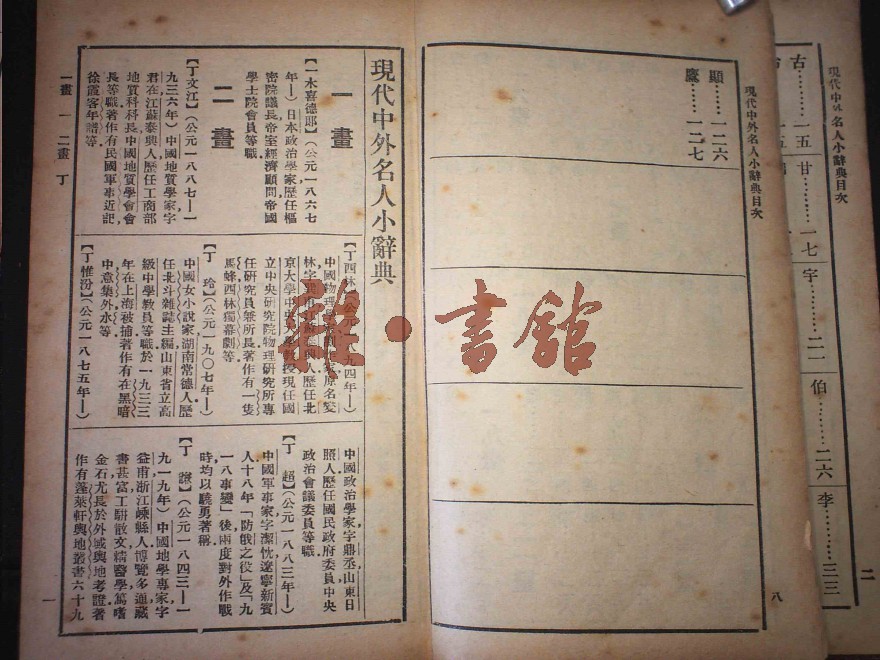 現代中外名人小辭典目次
古………一五
甘………一七
宇………二一
伯………二六
李………三三
二
現代中外名人小辭典目次
顯……一二六
鷹……一二七
八
現代中外名人小辭典
一畫
【一木喜德郎】（公元一八六七
年—）日本政治學家歷任樞
密院議長帝室經濟顧問帝國
學士院會員等職．
二畫
【丁文江】（公元一八八七—一
九三六年）中國地質學家字
君在江蘇泰興人歷任工商部
地質科科長中國地質學會會
長等職著作有民國軍事近記
徐霞客年譜等．
【丁西林】
中國物理學家
原名燮
林字
人歷任北
京大學中央
教授現任國
立中央研究院物理研究所專
任研究員兼所長著作有一隻
馬蜂西林獨幕劇等．
【丁　玲】（公元一九〇七年—）
中國女小說家湖南常德人歷
任北斗雜誌主編山東省立高
級中學教員等職於一九三三
年在上海被捕著作有在黑暗
中意集外水等．
【丁惟汾】（公元一八七五年—）
中國政治學家字鼎丞山東日
照人歷任國民政府委員中央
政治會議委員等職．
【丁　超】（公元一八八三年—）
中國軍事家字潔忱遼寧新賓
人十八年「防俄之役」及「九
一八事變」後兩度對外作戰
時均以驍勇著稱．
【丁　謙】（公元一八四三—一
九一九年）中國地學專家字
益甫浙江嵊縣人博覽多通藏
書甚富工駢散文精醫學篤嗜
金石尤長於外域輿地考證著
作有蓬萊軒輿地叢書六十九
一畫　一　二畫　丁
一
書館